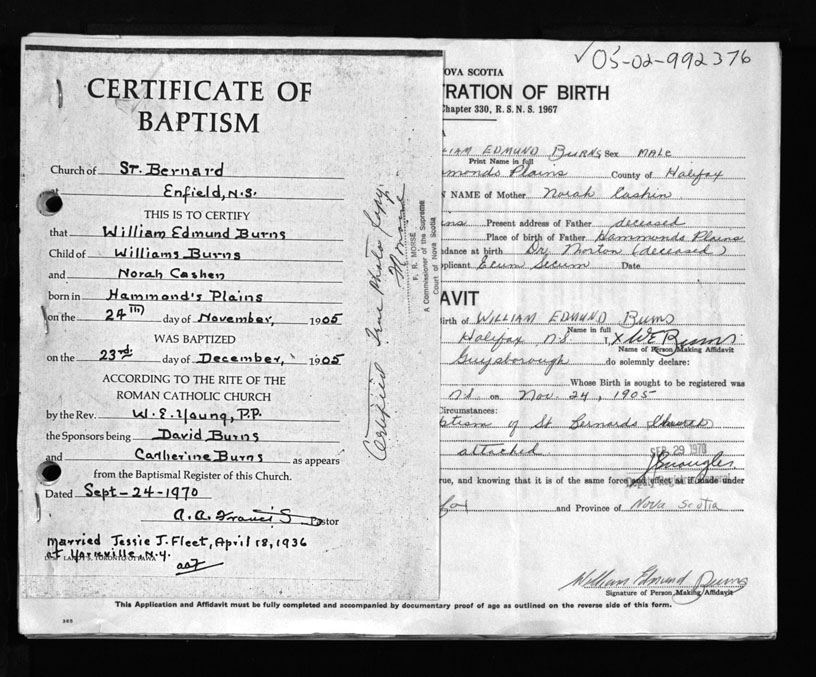 CERTIFICATE OF
BAPTISM
Church of St. Bernard
at Enfield, N.S.
THIS IS TO CERTIFY
that William Edmund Burns
Child of Williams Burns
and Norah Cashen
born in Hammond's Plains
on the 24th day of November, 1905
WAS BAPTIZED
on the 23rd day of December, 1905
ACCORDING TO THE RITE OF THE
ROMAN CATHOLIC CHURCH
by the Rev. W. E. Young, P.P.
the Sponsors being David Burns
and Catherine Burns as appears
from the Baptismal Register of this Church.
Dated Sept-24-1970
A. A. Francis Pastor
Married Jessie J. Fleet, April 18, 1936
at N.Y.
aaf
Certified True Photo Copy
F. R. MORSE
A Commissioner of the Supreme
Court of Nova Scotia
✓05-02-992376
NOVA SCOTIA
TRATION OF BIRTH
Chapter 330, R. S. N. S. 1967
LIAM EDMUND BURNS Sex MALE
Print Name in full
mmonds Plains County of Halifax
N NAME of Mother Norah Cashin
ins Present address of Father deceased
Place of birth of Father Hammonds Plains
ndance at birth Dr. Morton (deceased)
plicant Ecum Secum Date
AVIT
irth of WILLIAM EDMUND Burns
Name in full
Halifax N.S. I, X W E Burns
Name of Person Making Affidavit
Guysborough do solemnly declare:
Whose Birth is sought to be registered was
N.S. on Nov. 24, 1905
Circumstances:
ptism of St Bernards Church
attached
SEP 29 1970
rue, and knowing that it is of the same force and effect as if made under
fax and Province of Nova Scotia
William Edmund Burns
Signature of Person Making Affidavit
This Application and Affidavit must be fully completed and accompanied by documentary proof of age as outlined on the reverse side of this form.